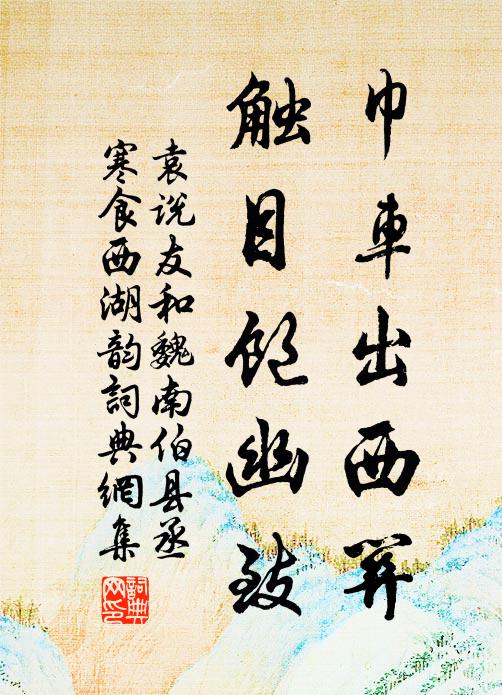 巾車出西关
触目饱幽致
袁说友和魏南伯县丞
寒食西湖韵詞典網集
詞典
网印